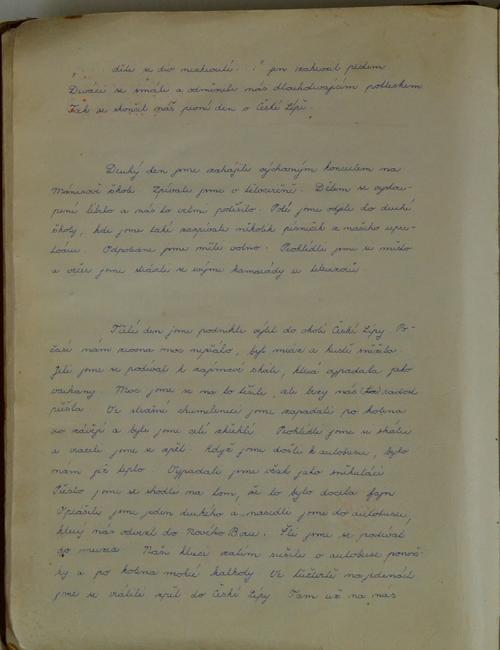 " .... děti se dio nezkroutí ..." jen zahrozil prstem
Diváci se smáli a odměnili nás dlouhotrvajícím potleskem
Tak se skončil náš první den v České Lípě.
Druhý den jsme zahájili výchovným koncertem na
Mánesově škole Zpívali jsme v tělocvičně. Dětem se vystou-
pení líbilo a nás to velmi potěšilo. Poté jsme odjeli do druhé
školy, kde jsme také zazpívali několik písniček z našeho reper-
toáru. Odpoledne jsme měli volno. Prohlédli jsme si město
a večer jsme strávili se svými kamarády u televizorů
Třetí den jsme podnikli výlet do okolí České Lípy Po-
časí nám zrovna moc nepřálo, byl mráz a hustě sněžilo.
Jeli jsme se podívat k zajímavé skále, která vypadala jako
varhany. Moc jsme se na to těšili, ale brzy nás radost
přešla Ve strašné chumelenici jsme zapadali po kolena
do závějí a byli jsme celí zkřehlí Prohlédli jsme si skálu
a vraceli jsme se zpět. Když jsme došli k autobusu, bylo
nám již teplo Vypadali jsme však jako sněhuláci
Přesto jsme se shodli na tom, že to bylo docela fajn
Oprášili jsme jeden druhého a nasedli jsme do autobusu,
který nás odvezl do Nového Boru. Šli jsme se podívat
do muzea Naši kluci zatím sušili v autobuse ponož-
ky a po kolena mokré kalhoty Ve čtvrtě na jedenáct
jsme se vrátili zpět do České Lípy Tam už na nás